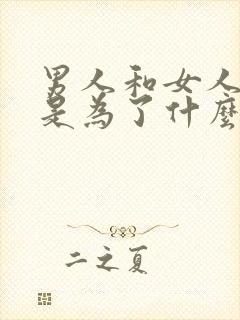 男人和女人
是為了什麼
二之夏